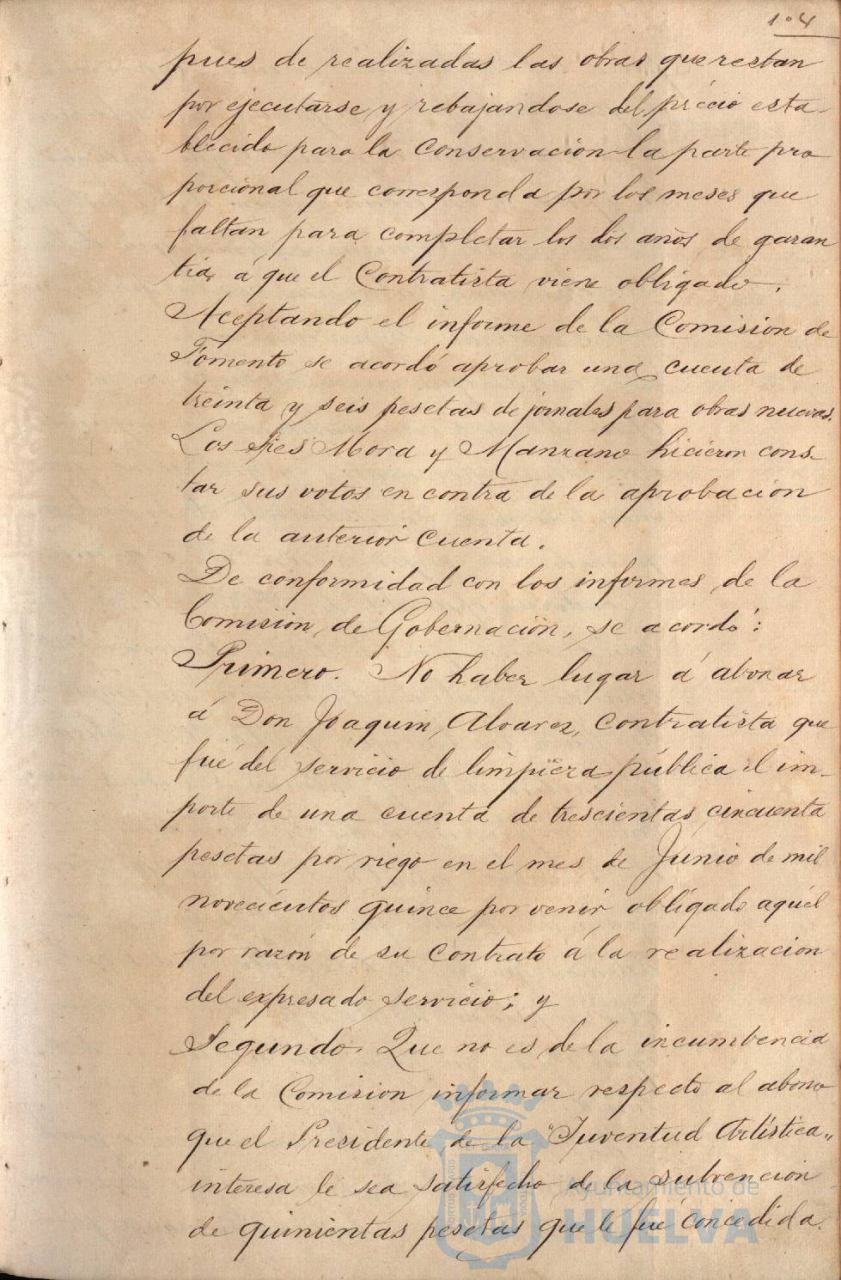 104
pues de realizadas las obras que restan
por ejecutarse y rebajandose del précio esta-
blecido para la conservación la parte pro
porcional que corresponda por los meses que
faltan para completar los dos años de garan
tia, á que el Contratista viene obligado.
Aceptando el informe de la Comision de
Fomento se acordó aprobar una cuenta de
treinta y seis pesetas de jornales para obras nuevas.
Los Sres Mora y Manzano hicieron cons-
tar sus votos en contra de la aprobación
de la anterior cuenta.
De conformidad con los informes de la
Comisión de Gobernación, se acordó:
Primero. No haber lugar á abonar
á Don Joaquin Alvarez, contratista que
fué del servicio de limpieza pública el im-
porte de una cuenta de trescientas cincuenta
pesetas por riego en el mes de Junio de mil
novecientos quince por venir obligado aquél
por razón de su contrato á la realizacion
del expresado servicio; y
Segundo. Que no es de la incumbencia
de la Comisión informar respecto al abono
que el Presidente de la "Juventud Artística"
interesa le sea satisfecho de la subvención
de quinientas pesetas que le fué concedida.
Ayuntamiento de
HUELVA